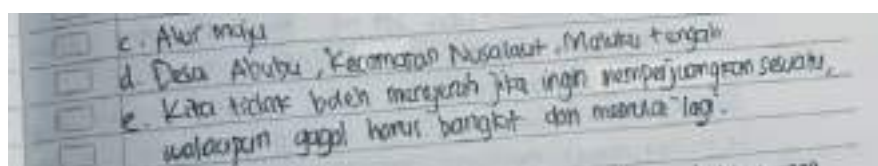 c. Alur maju
d Desa Abubu, Kecamatan Nusalaut, Maluku tengah
e. Kita tidak boleh menyerah jika ingin memperjuangkan sesuatu,
walaupun gagal harus bangkit dan memulai lagi.